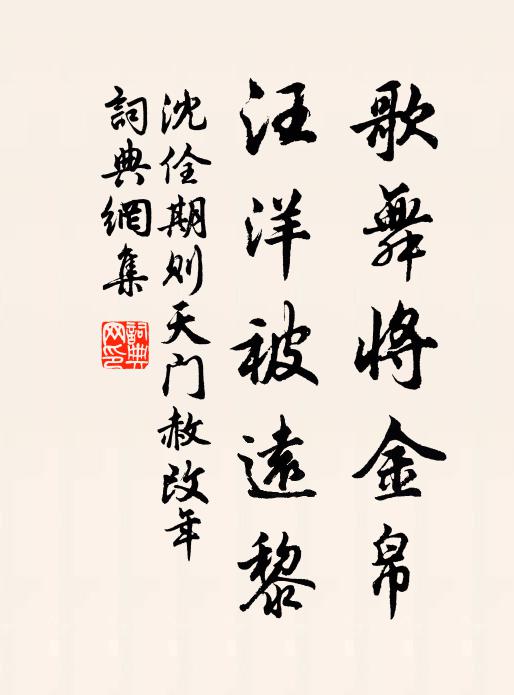 歌舞將金帛
汪洋被遠黎
沈佺期则天门赦改年
詞典網集
詞典网印